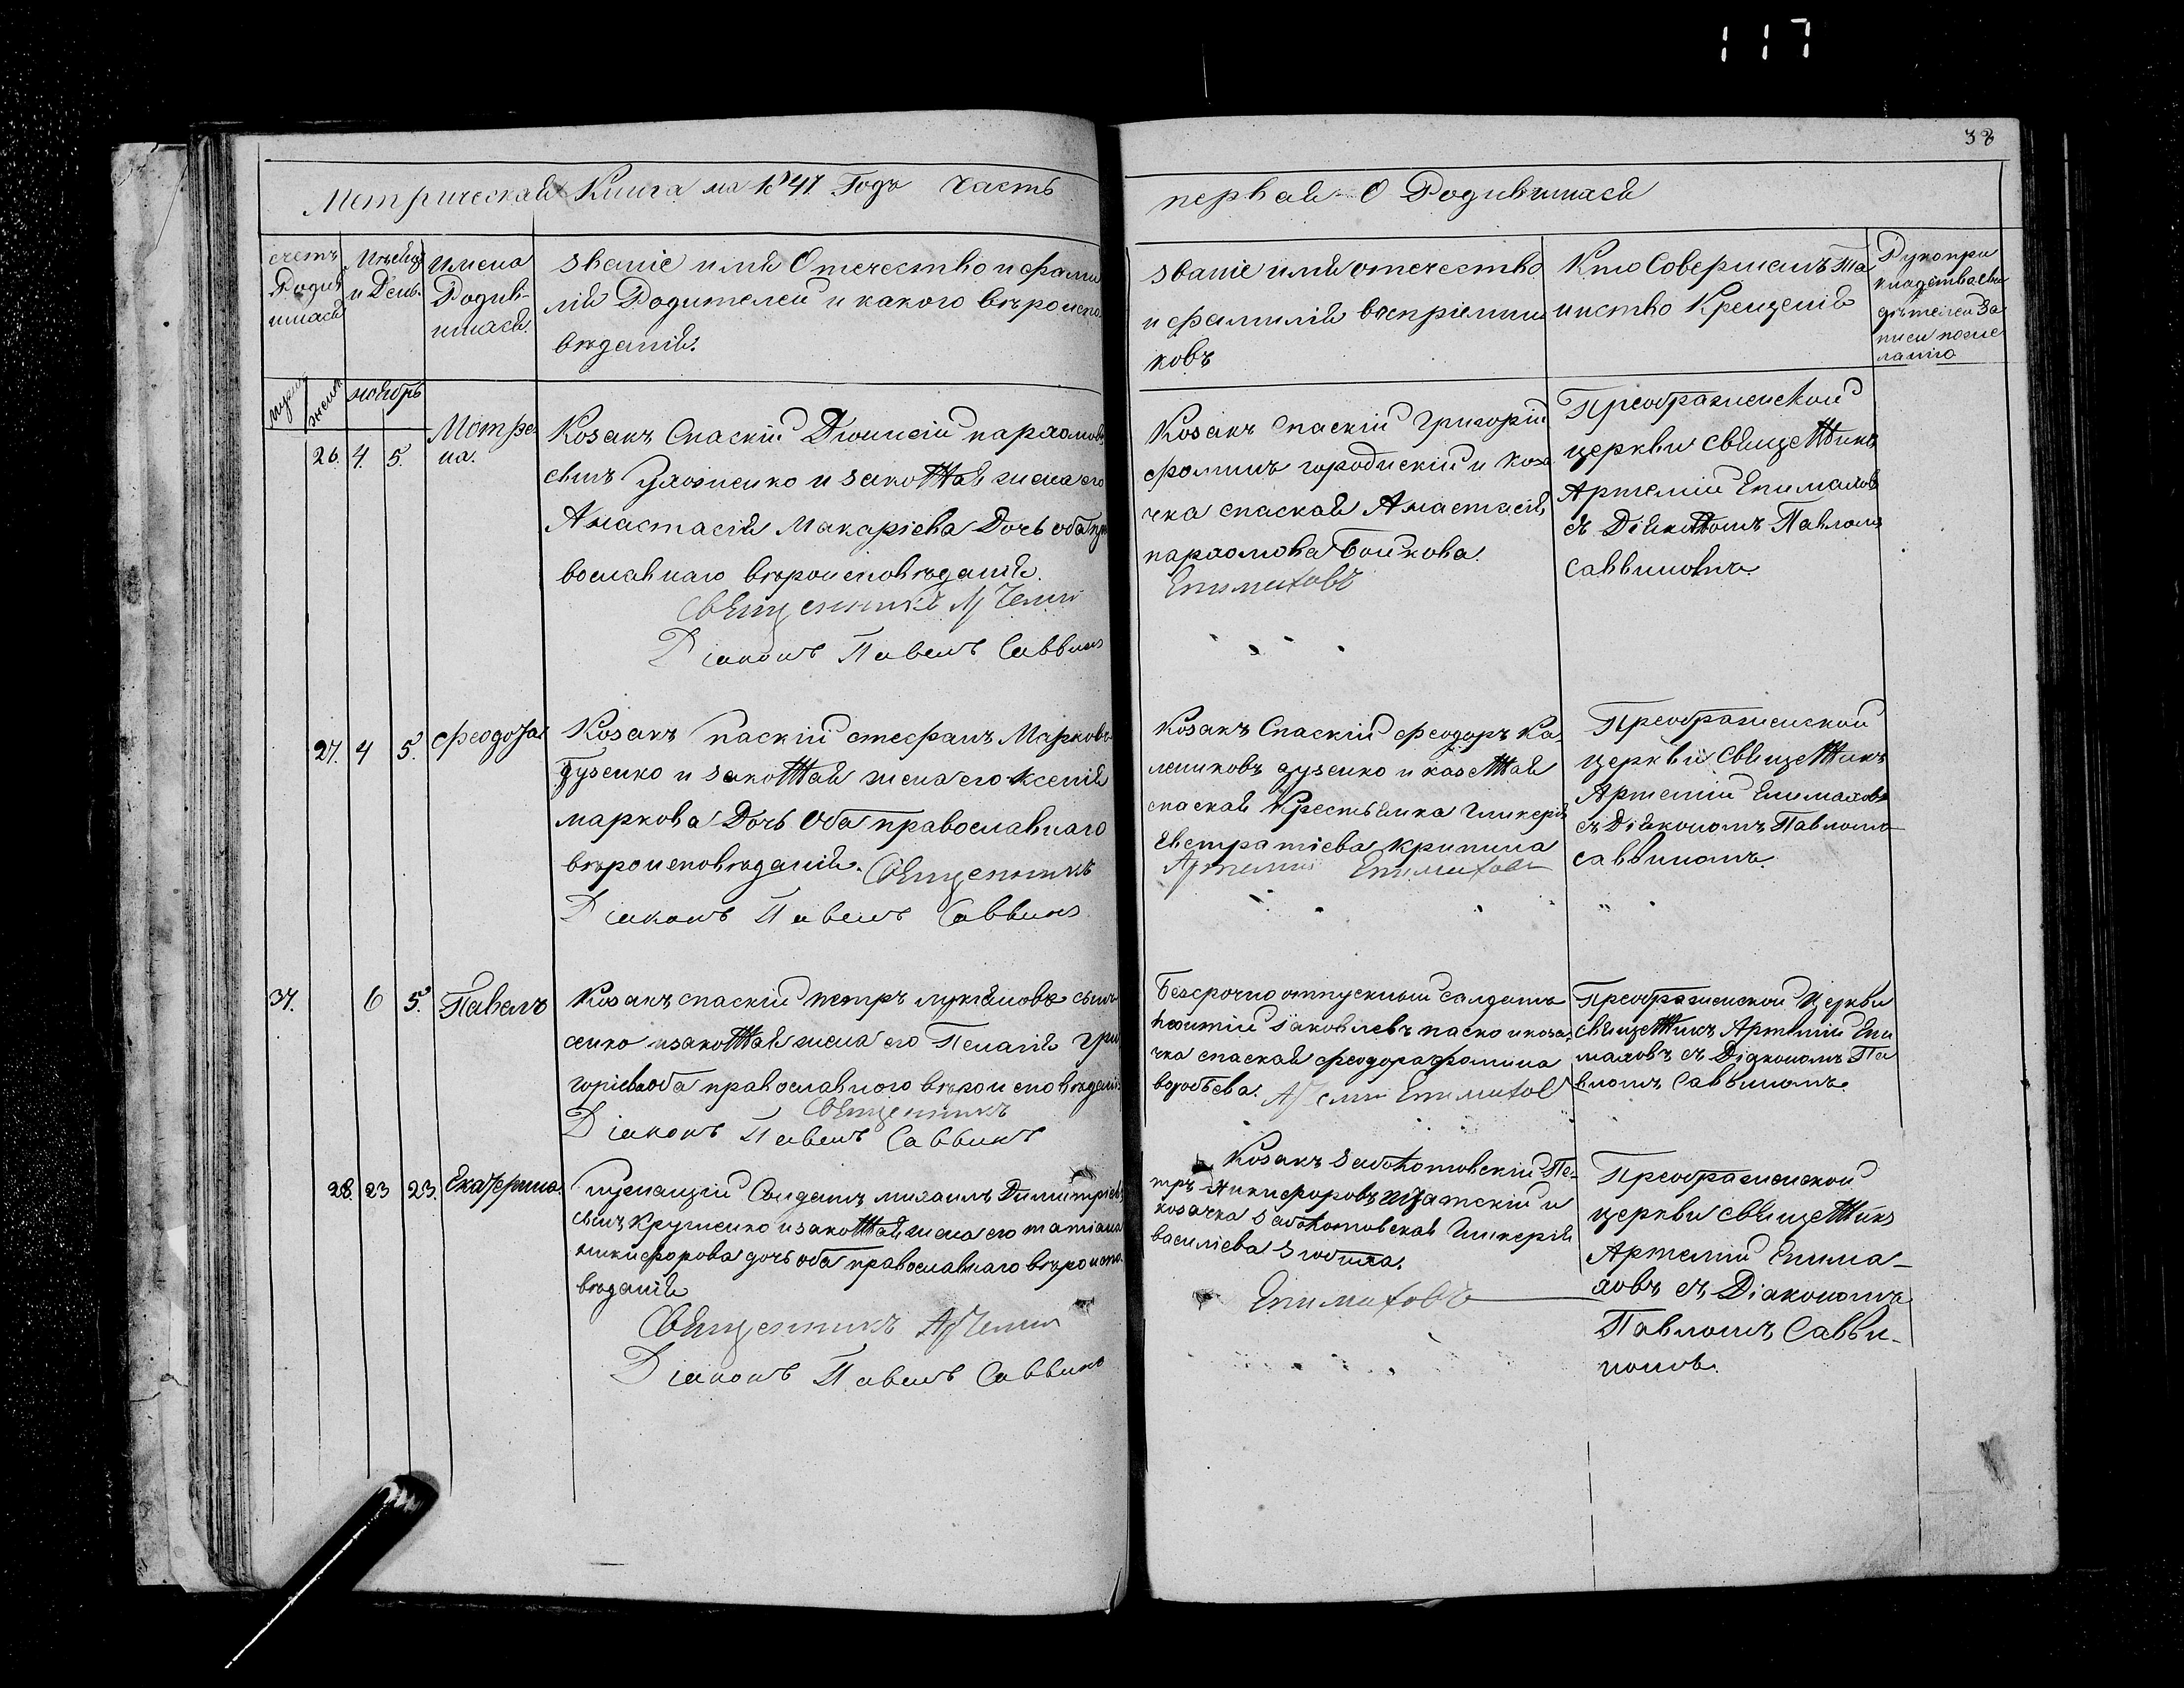 117
38
Метрическая Книга на 1847 Годъ Часть
первая О Родившихся
счетъ Родившихся
Мѣсяцъ и День.
Имена Родив-
шихся.
Званіе имя Отечество и фами
лія Родителей и какого вѣроиспо
вѣданія.
Званіе имя отечество
и фамилія воспріемни
ковъ
Кто Совершалъ Та
инство Крещенія
Рукопри
кладства сви
дѣтелей За
писи по же
ланію
ноябрь
26. 4. 5.
Мотре
на.
Козакъ Спаскій Діонисій пархомовъ
сынъ и законная жена его
Анастасія Макаріева Дочь оба пра
вославнаго вѣроисповѣданія.
Священникъ Артемій
Діаконъ Павелъ Саввинъ
Козакъ спаскій Григорій
фоминъ городискій и коза
чка спаская Анастасія
пархомова Бойкова.
Епимаховъ
Преображенской
церкви священникъ
Артемій Епимаховъ
съ Діякономъ Павломъ
Саввиномъ.
27. 4 5. Феодосія
Козакъ спаскій стефанъ Марковъ
Гузенко и законная жена его ксенія
маркова Дочь Оба православнаго
вѣроисповѣданія. Священникъ
Діаконъ Павелъ Саввинъ
Козакъ Спаскій феодоръ Ка-
лениковъ гузенко и казенная
спаская Крестьянка гликерія
Евстратіева крипина
Артемій Епимаховъ
Преображенской
церкви Священникъ
Артемій Епимаховъ
съ Діякономъ Павломъ
саввиномъ.
37. 6 5. Павелъ
Козакъ спаскій петръ лукіановъ сынъ
сенко и законная жена его Пелагія гри
горіева оба православного вѣроисповѣданія
Священникъ
Діаконъ Павелъ Саввинъ
Безсрочно отпускный салдатъ
леонтій іаковлевъ паско и коза
чка спаская феодора фомина
воробѣева. Артемій Епимахов
Преображенской Церкви
священникъ Артемій Епи
маховъ съ Діякономъ Па
вломъ Саввиномъ.
28. 23 23. Екатерина.
служащій Солдатъ михаилъ Димитріевъ
сынъ Кругленко и законная жена его татіана
никифорова дочь оба православнаго вѣроиспо
вѣданія
Священникъ Артемій
Діаконъ Павелъ Саввинъ
Козакъ Заболотовскій Пе-
тръ Никифоровъ и
козачка Заболотовская Гликерія
василіева
Епимаховъ
Преображенской
церкви священникъ
Артемій Епима-
ховъ съ Діакономъ
Павломъ Савви-
номъ.